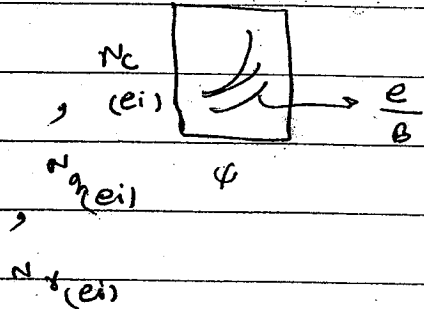 Nc
, (ei) e/B
N (ei) ψ
,
N γ(ei)